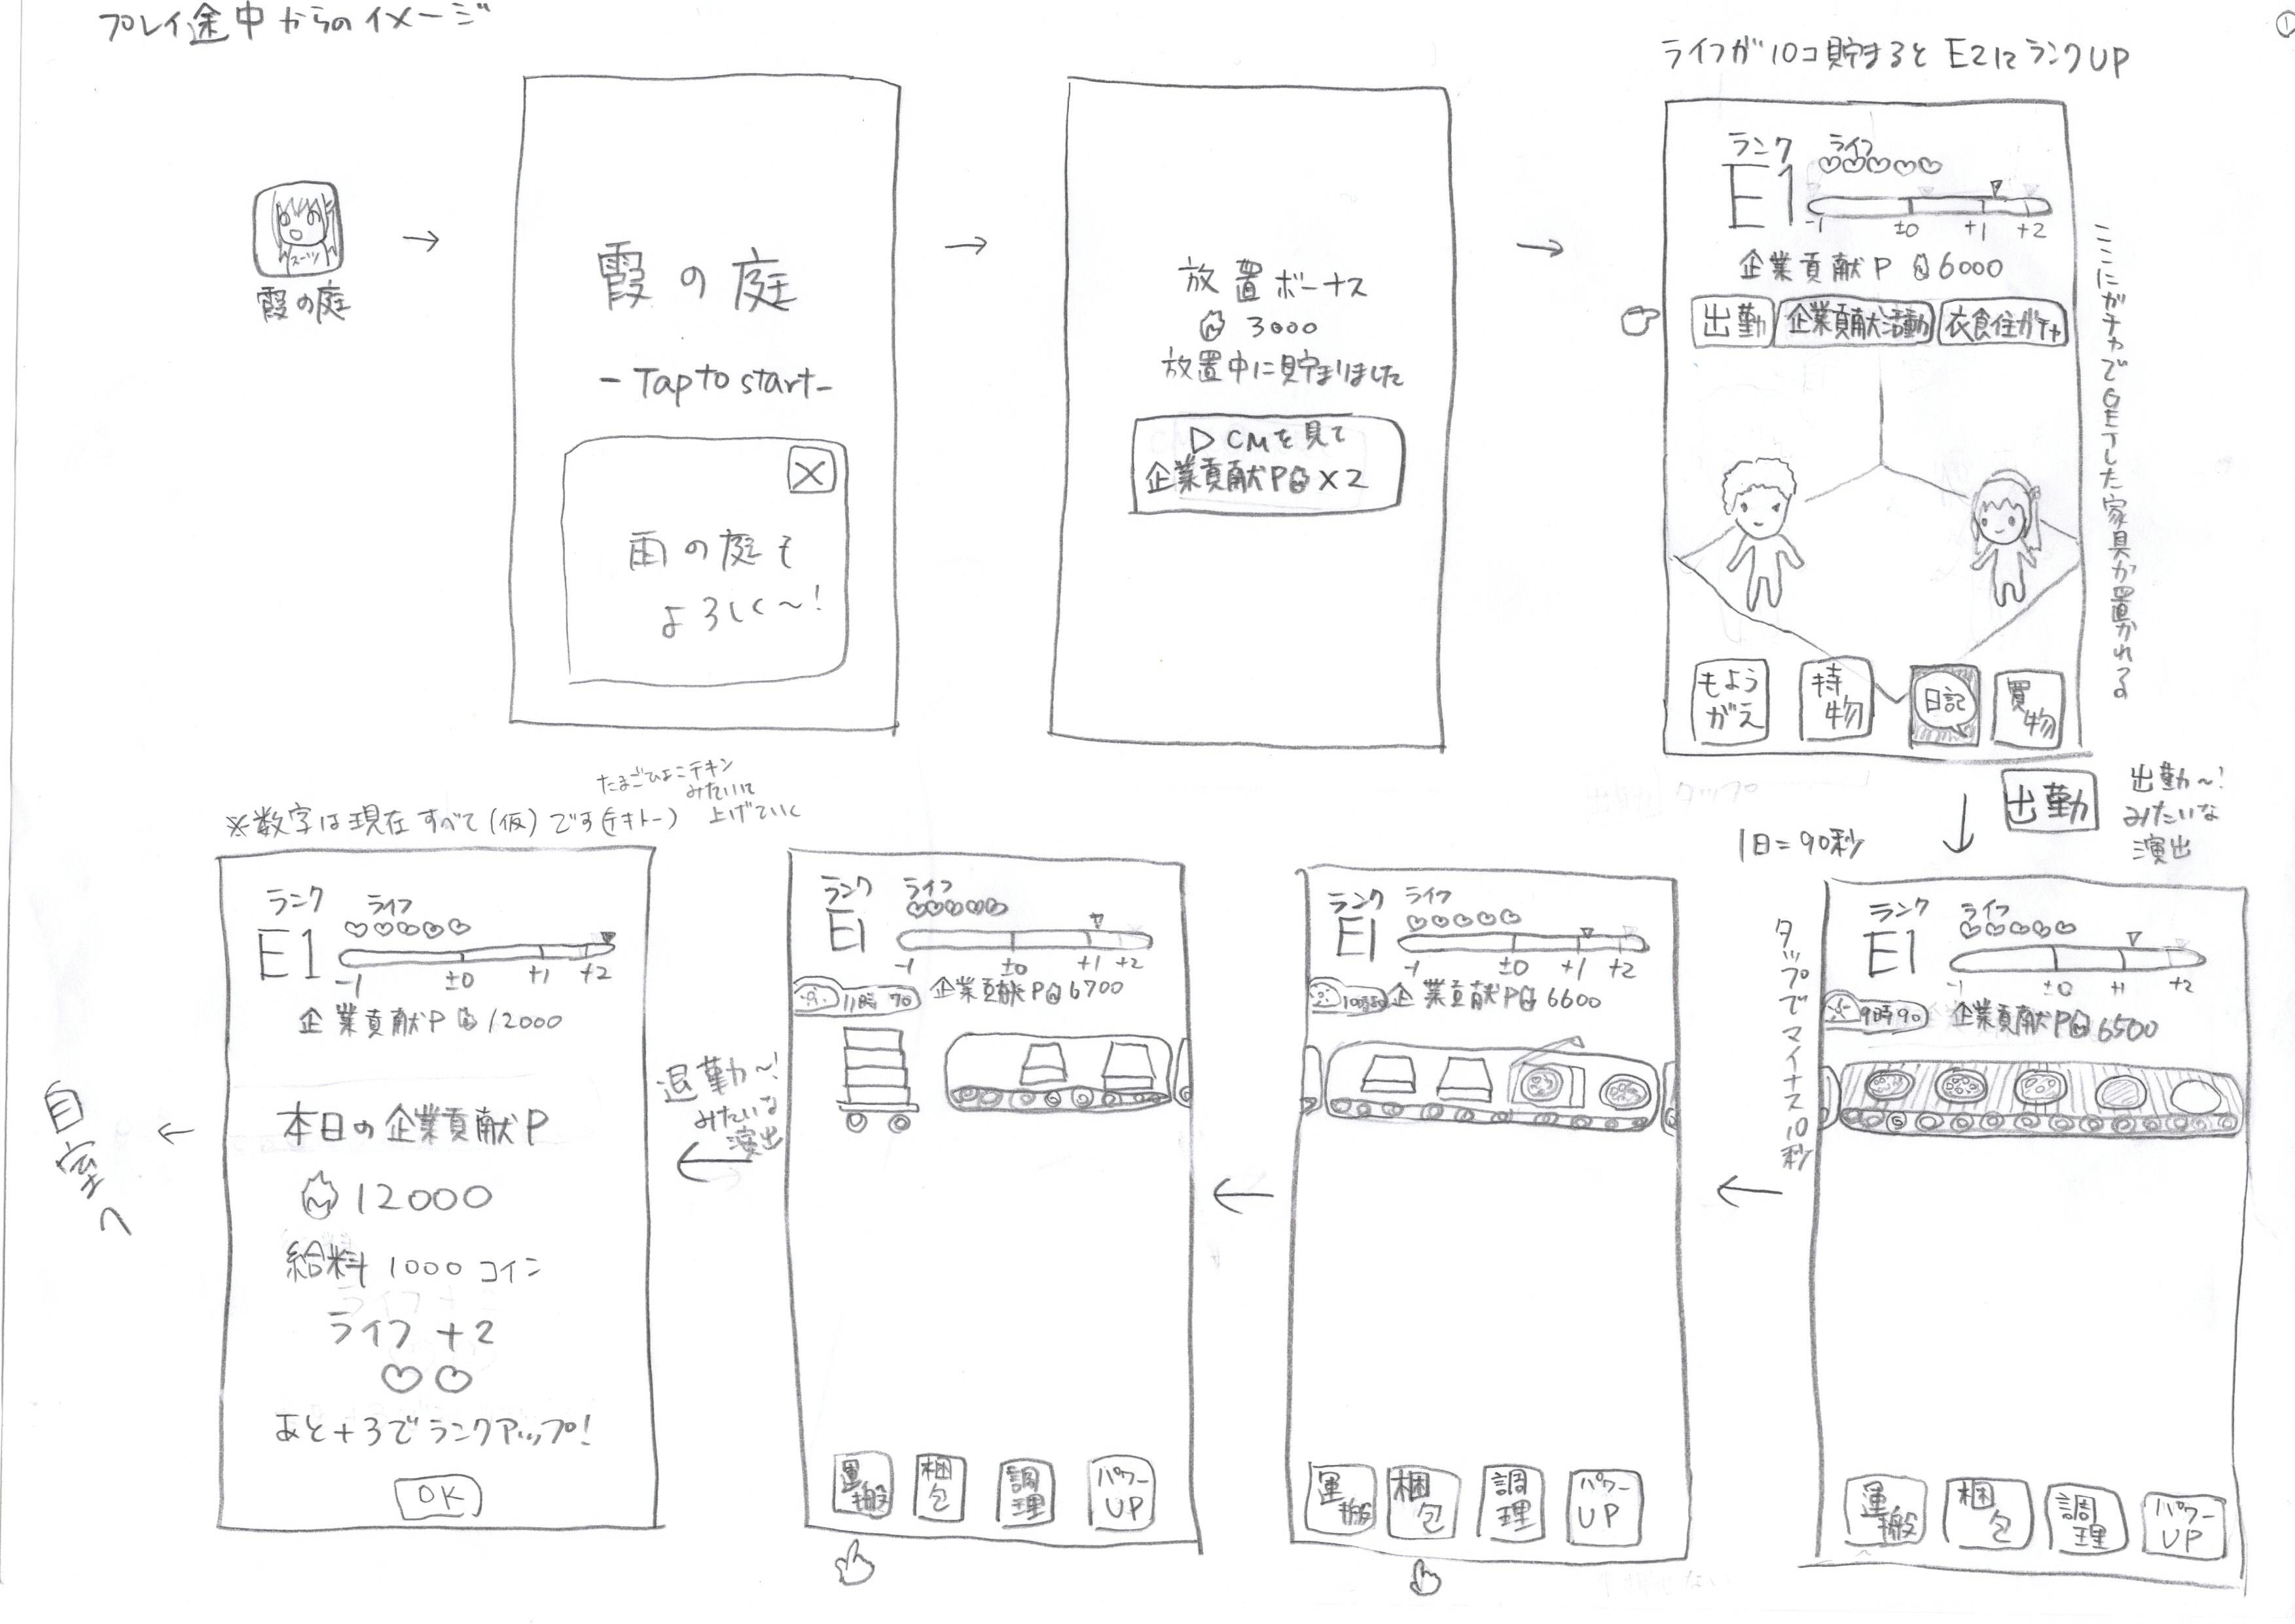 プレイ途中からのイメージ
①
スーツ
霞の庭
霞の庭
-Tap to start-
×
雨の庭も
よろしく～!
放置ボーナス
3000
放置中に貯まりました
▷CMを見て
企業貢献P×2
ライフが10コ貯まるとE2にランクUP
ランク
ライフ
E1
-1 ±0 +1 +2
企業貢献P 6000
出勤
企業貢献活動
衣食住ガチャ
ここにガチャでGETした家具が置かれるの
もよう
がえ
持
物
日記
買
物
出勤
出勤～!
みたいな
演出
1日=90秒
タップでマイナス10秒
ランク
ライフ
E1
-1 ±0 +1 +2
9時 90
企業貢献P 6500
運
搬
梱
包
調
理
パワー
UP
ランク
ライフ
E1
-1 ±0 +1 +2
企業貢献P 6600
運
搬
梱
包
調
理
パワー
UP
ランク
ライフ
E1
-1 ±0 +1 +2
11時 70
企業貢献P 6700
運
搬
梱
包
調
理
パワー
UP
退勤～!
みたいな
演出
たまごひよこチキン
みたいに
上げていく
※数字は現在すべて(仮)です(テキトー)
ランク
ライフ
E1
-1 ±0 +1 +2
企業貢献P 12000
本日の企業貢献P
12000
給料 1000コイン
ライフ +2
あと+3でランクアップ!
OK
自室へ